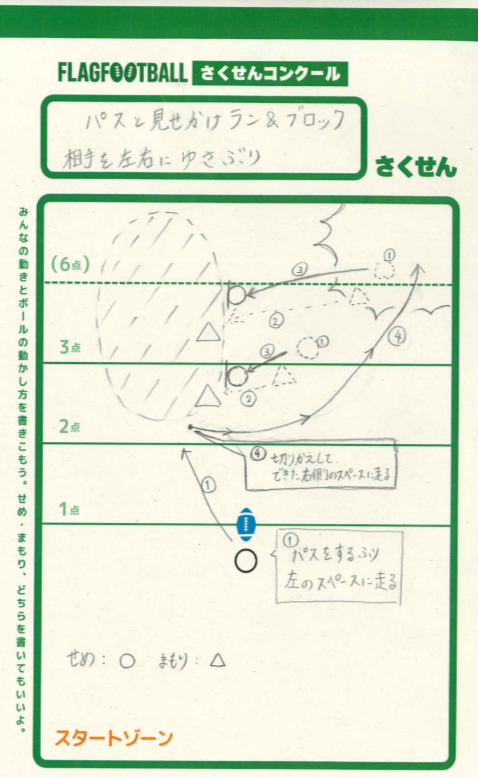 FLAGFOOTBALL さくせんコンクール
パスと見せかけラン&ブロック
相手を左右にゆさぶり
さくせん
みんなの動きとボールの動かし方を書きこもう。せめ・まもり、どちらを書いてもいいよ。
(6点)
①
③
②
④
3点
①
③
②
2点
④切りかえして
できた右側のスペースに走る
①
1点
①
パスをするふり
左のスペースに走る
せめ:○ まもり:△
スタートゾーン